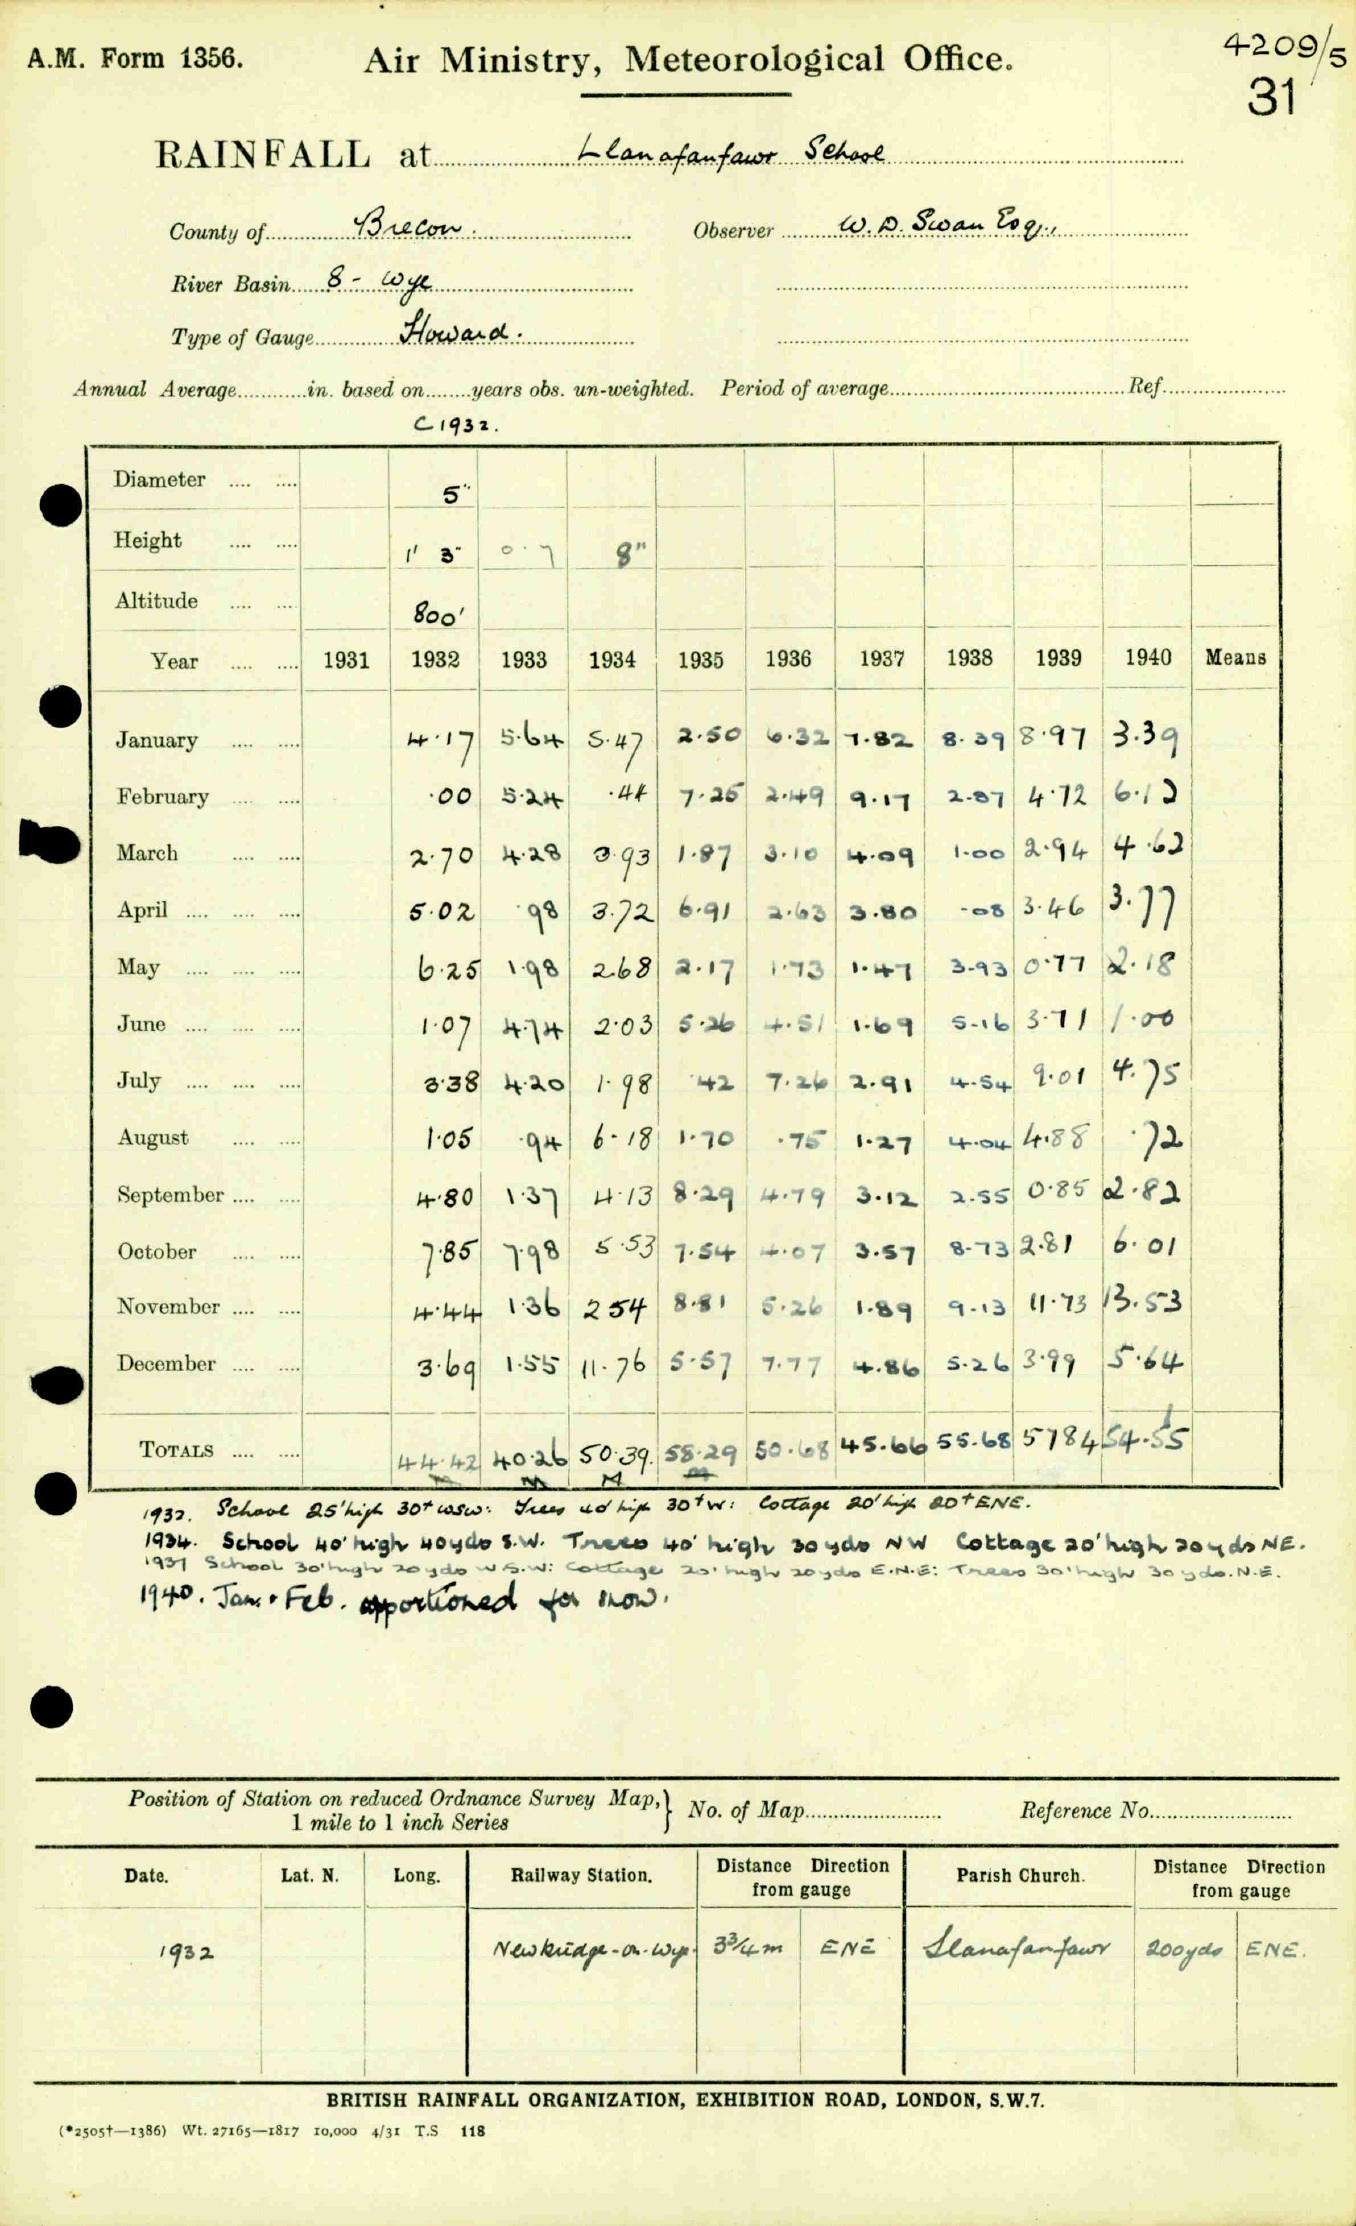 A.M. Form 1356.
Air Ministry, Meteorological Office.
4209/5
31
RAINFALL at Llanafanfawr School
County of Brecon. Observer W. D. Swan Esq.,
River Basin 8 - Wye
Type of Gauge Howard.
Annual Average in. based on years obs. un-weighted. Period of average Ref.
C 1932.
Diameter 5"
Height 1' 3" 0.7 8"
Altitude 800'
Year 1931 1932 1933 1934 1935 1936 1937 1938 1939 1940 Means
January 4.17 5.64 5.47 2.50 6.32 7.82 8.39 8.97 3.39
February .00 5.24 .44 7.25 2.49 9.17 2.87 4.72 6.12
March 2.70 4.28 3.93 1.87 3.10 4.09 1.00 2.94 4.62
April 5.02 .98 3.72 6.91 2.63 3.80 .08 3.46 3.77
May 6.25 1.98 2.68 2.17 1.73 1.47 3.93 0.77 2.18
June 1.07 4.74 2.03 5.26 4.51 1.69 5.16 3.71 1.00
July 3.38 4.20 1.98 .42 7.26 2.91 4.54 9.01 4.75
August 1.05 .94 6.18 1.70 .75 1.27 4.04 4.88 .72
September 4.80 1.37 4.13 8.29 4.79 3.12 2.55 0.85 2.82
October 7.85 7.98 5.53 7.54 4.07 3.57 8.73 2.81 6.01
November 4.44 1.36 2 54 8.81 5.26 1.89 9.13 11.73 13.53
December 3.69 1.55 11.76 5.57 7.77 4.86 5.26 3.99 5.64
TOTALS 44.42 40.26 50.39. 58.29 50.68 45.66 55.68 57 84 54.55
M M M M
1932. School 25' high 30+ WSW: Trees 40' high 30+ W: Cottage 20' high 20+ ENE.
1934. School 40' high 40yds S.W. Trees 40' high 30yds NW Cottage 20' high 20yds NE.
1937 School 30' high 20yds W S.W: Cottage 20' high 20yds E.N.E: Trees 30' high 30yds. N.E.
1940. Jan. + Feb. apportioned for snow.
Position of Station on reduced Ordnance Survey Map, 1 mile to 1 inch Series } No. of Map Reference No.
Date. Lat. N. Long. Railway Station. Distance Direction from gauge Parish Church. Distance Direction from gauge
1932 Newbridge-on-Wye. 3¾m ENE Llanafanfawr 200yds ENE.
BRITISH RAINFALL ORGANIZATION, EXHIBITION ROAD, LONDON, S.W.7.
(*2505†—1386) Wt. 27165—1817 10,000 4/31 T.S 118